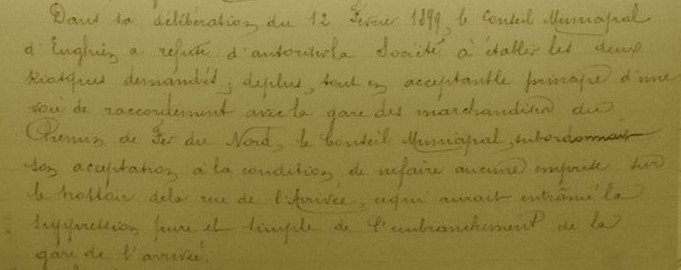 Dans sa délibération du 12 Février 1899, le Conseil Municipal
d'Enghien a refusé d'autoriser la Société à établir les deux
Kiosques demandés; de plus, tout en acceptant le principe d'une
voie de raccordement avec la gare des marchandises du
Chemin de Fer du Nord, le Conseil Municipal, subordonnait
son acceptation à la condition de ne faire aucune emprise sur
le trottoir de la rue de l'Arrivée, ce qui aurait entraîné la
suppression pure et simple de l'embranchement de la
gare de l'arrivée.